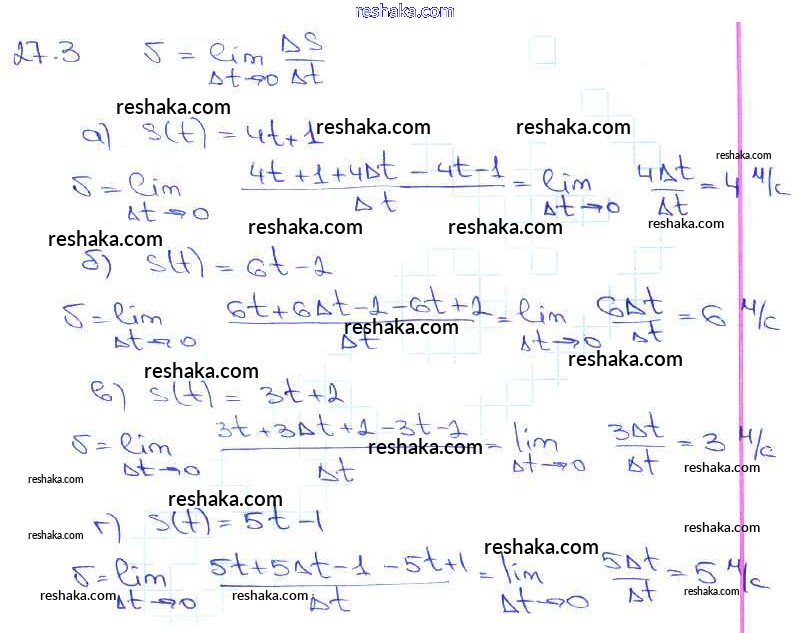 reshaka.com
27.3 υ = lim Δt→0 ΔS/Δt
reshaka.com
а) S(t) = 4t+1 reshaka.com reshaka.com
reshaka.com
υ = lim Δt→0 (4t+1+4Δt-4t-1)/Δt = lim Δt→0 4Δt/Δt = 4 м/с
reshaka.com reshaka.com reshaka.com reshaka.com
б) S(t) = 6t-2
υ = lim Δt→0 (6t+6Δt-2-6t+2)/Δt = lim Δt→0 6Δt/Δt = 6 м/с
reshaka.com
reshaka.com reshaka.com
в) S(t) = 3t+2
υ = lim Δt→0 (3t+3Δt+2-3t-2)/Δt = lim Δt→0 3Δt/Δt = 3 м/с
reshaka.com reshaka.com reshaka.com
reshaka.com
г) S(t) = 5t-1
reshaka.com reshaka.com
reshaka.com
υ = lim Δt→0 (5t+5Δt-1-5t+1)/Δt = lim Δt→0 5Δt/Δt = 5 м/с
reshaka.com reshaka.com reshaka.com reshaka.com